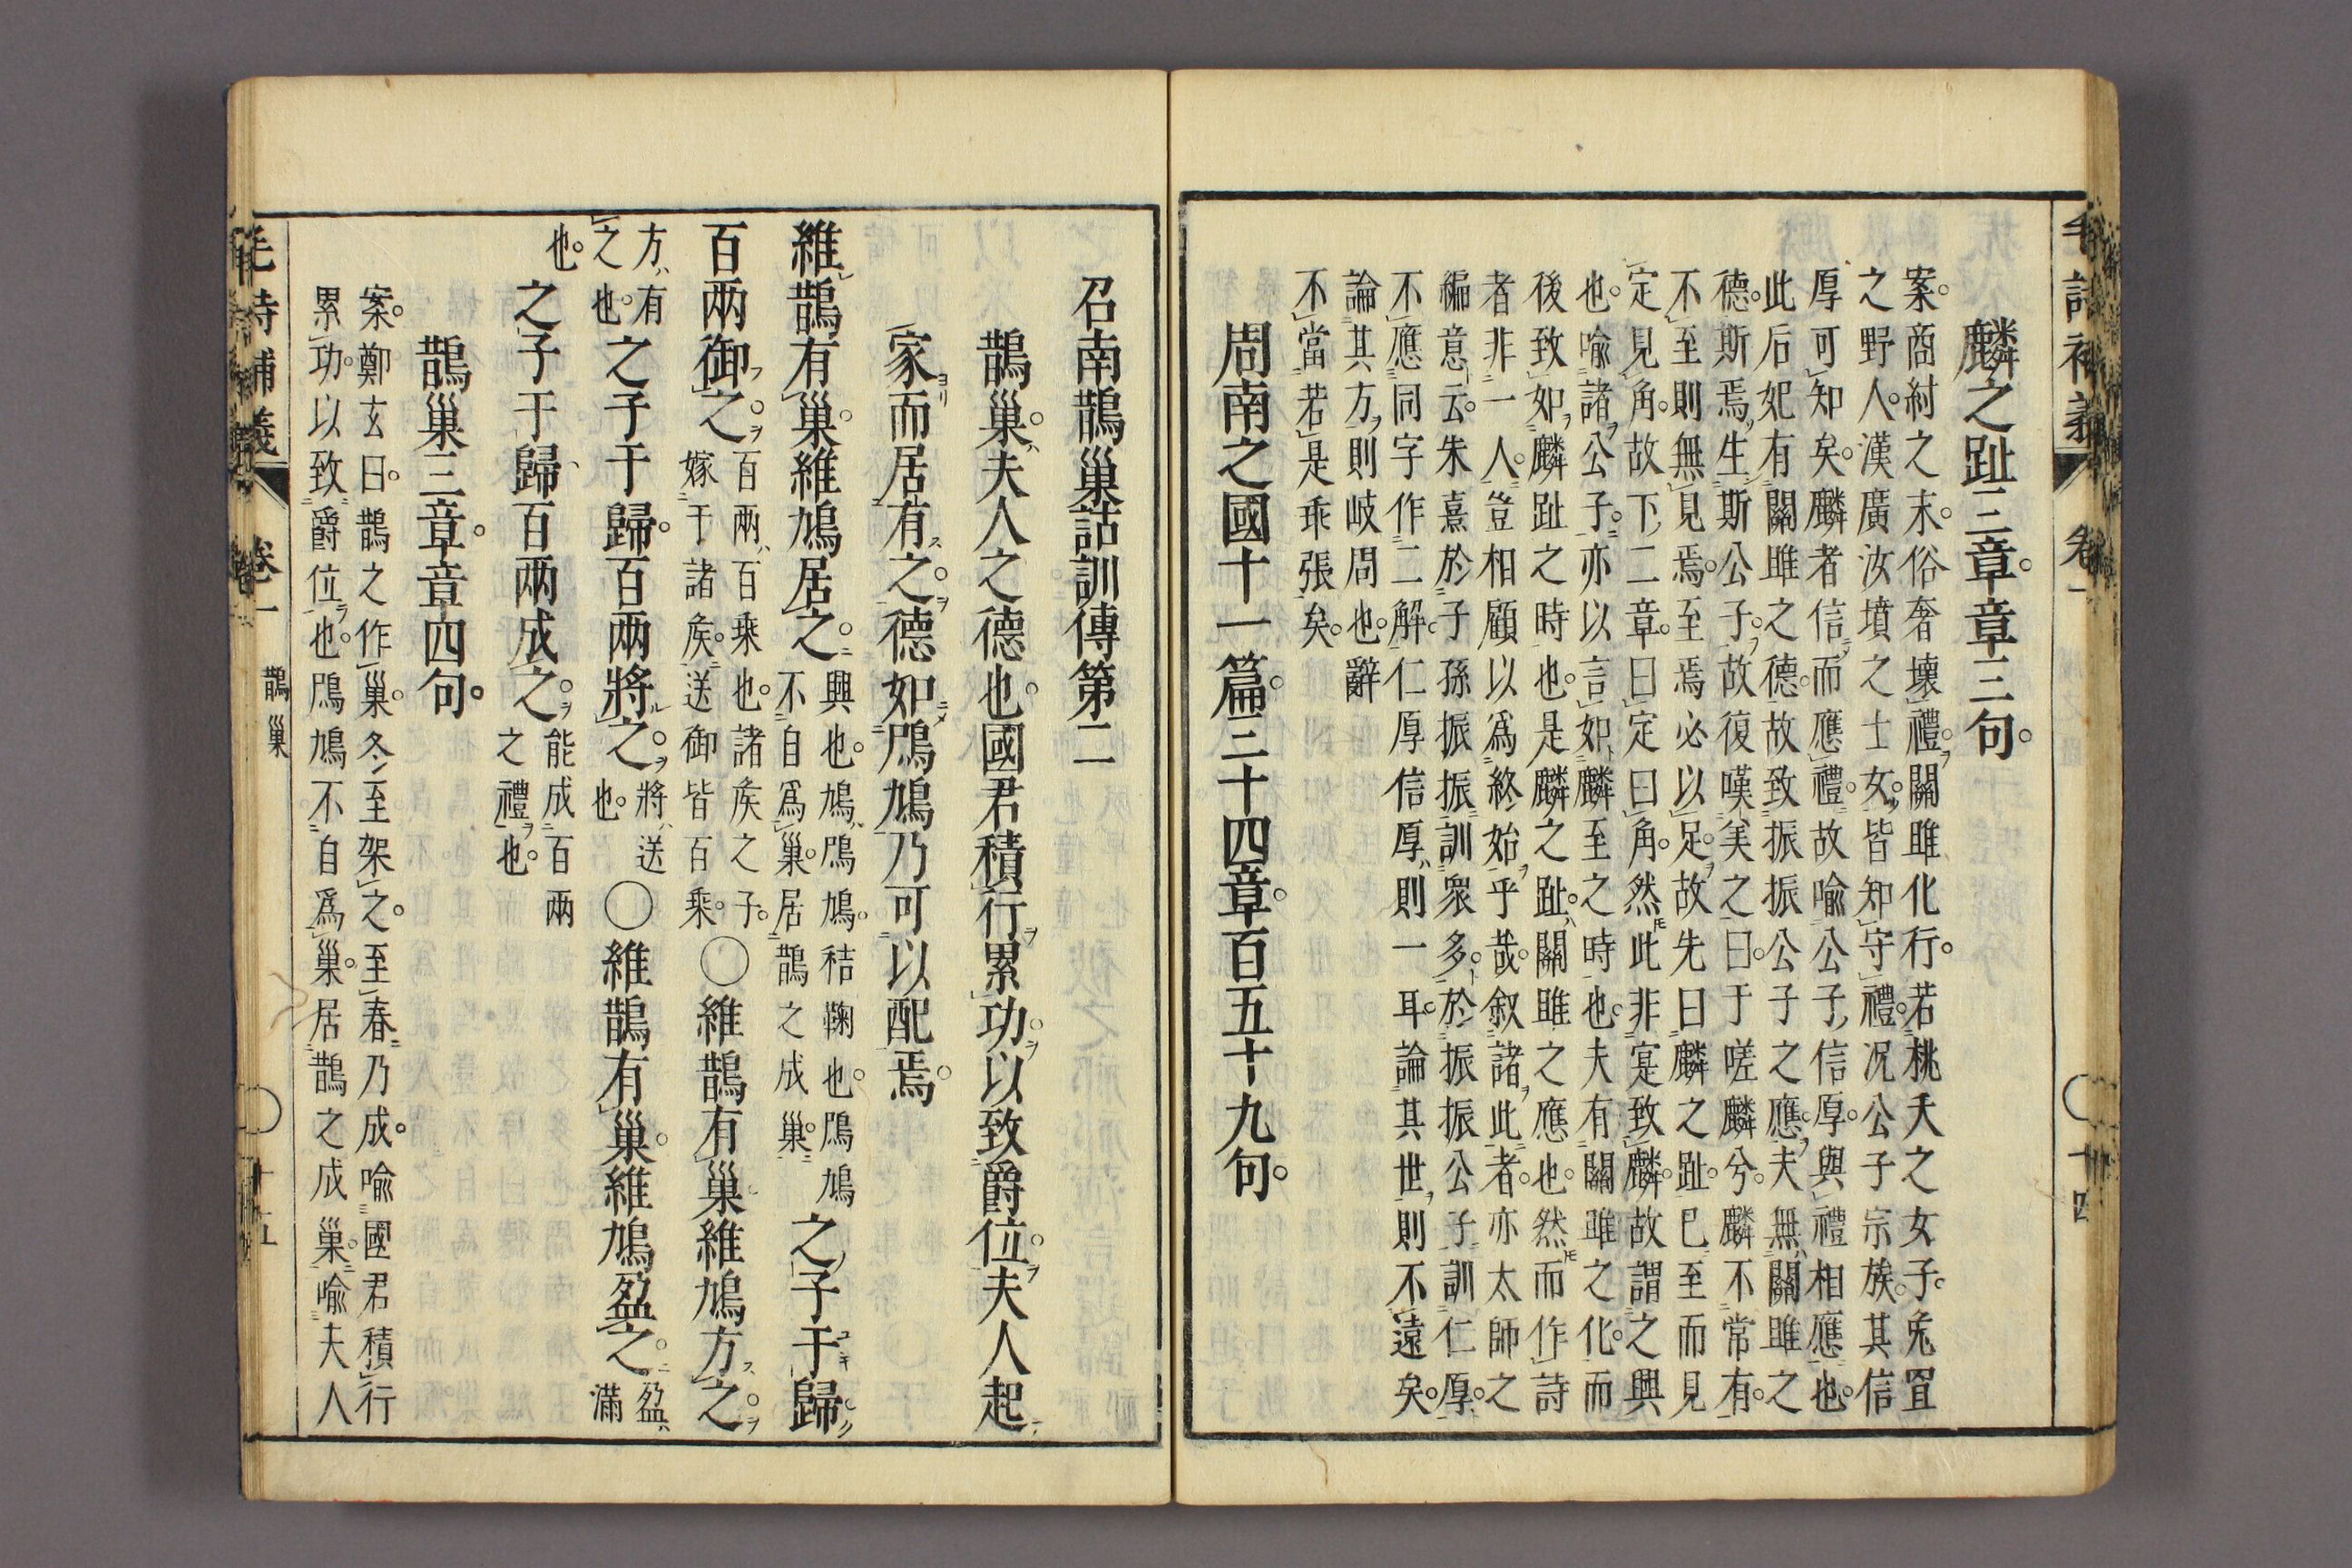 麟之趾三章章三句
案商紂之末俗奢壞禮關雎化行若桃夭之女子兔罝
之野人漢廣汝墳之士女皆知守禮况公子宗族其信
厚可知矣麟者信而應禮故喩公子信厚與禮相應也
此后妃有關雎之德故致振振公子之應夫無關雎之
德斯焉生斯公子故復嘆美之曰于嗟麟兮麟不常有
不至則無見焉至焉必以足故先曰麟之趾已至而見
定見角故下二章曰定曰角然此非寔致麟故謂之興
也喩諸公子亦以言如麟至之時也夫有關雎之化而
後致如麟趾之時也是麟之趾關雎之應也然而作詩
者非一人豈相顧以爲終始乎哉叙諸此者亦太師之
編意云朱熹於子孫振振訓衆多於振振公子訓仁厚
不應同字作二解仁厚信厚則一耳論其世則不遠矣
論其方則岐周也辭
不當若是乖張矣
周南之國十一篇三十四章百五十九句
召南鵲巢詁訓傳第二
鵲巢夫人之德也國君積行累功以致爵位夫人起
家而居有之德如鳲鳩乃可以配焉
維鵲有巢維鳩居之興也鳩鳲鳩秸鞠也鳲鳩不自爲巢居鵲之成巢之子于歸
百兩御之百兩百乘也諸矦之子嫁于諸矦送御皆百乘〇維鵲有巢維鳩方之
方有之也之子于歸百兩將之將送也〇維鵲有巢維鳩盈之盈滿
也之子于歸百兩成之能成百兩之禮也
鵲巢三章章四句
案鄭玄曰鵲之作巢冬至架之至春乃成喩國君積行
累功以致爵位也鳲鳩不自爲巢居鵲之成巢喩夫人
毛詩補義 卷一 鵲巢 十五